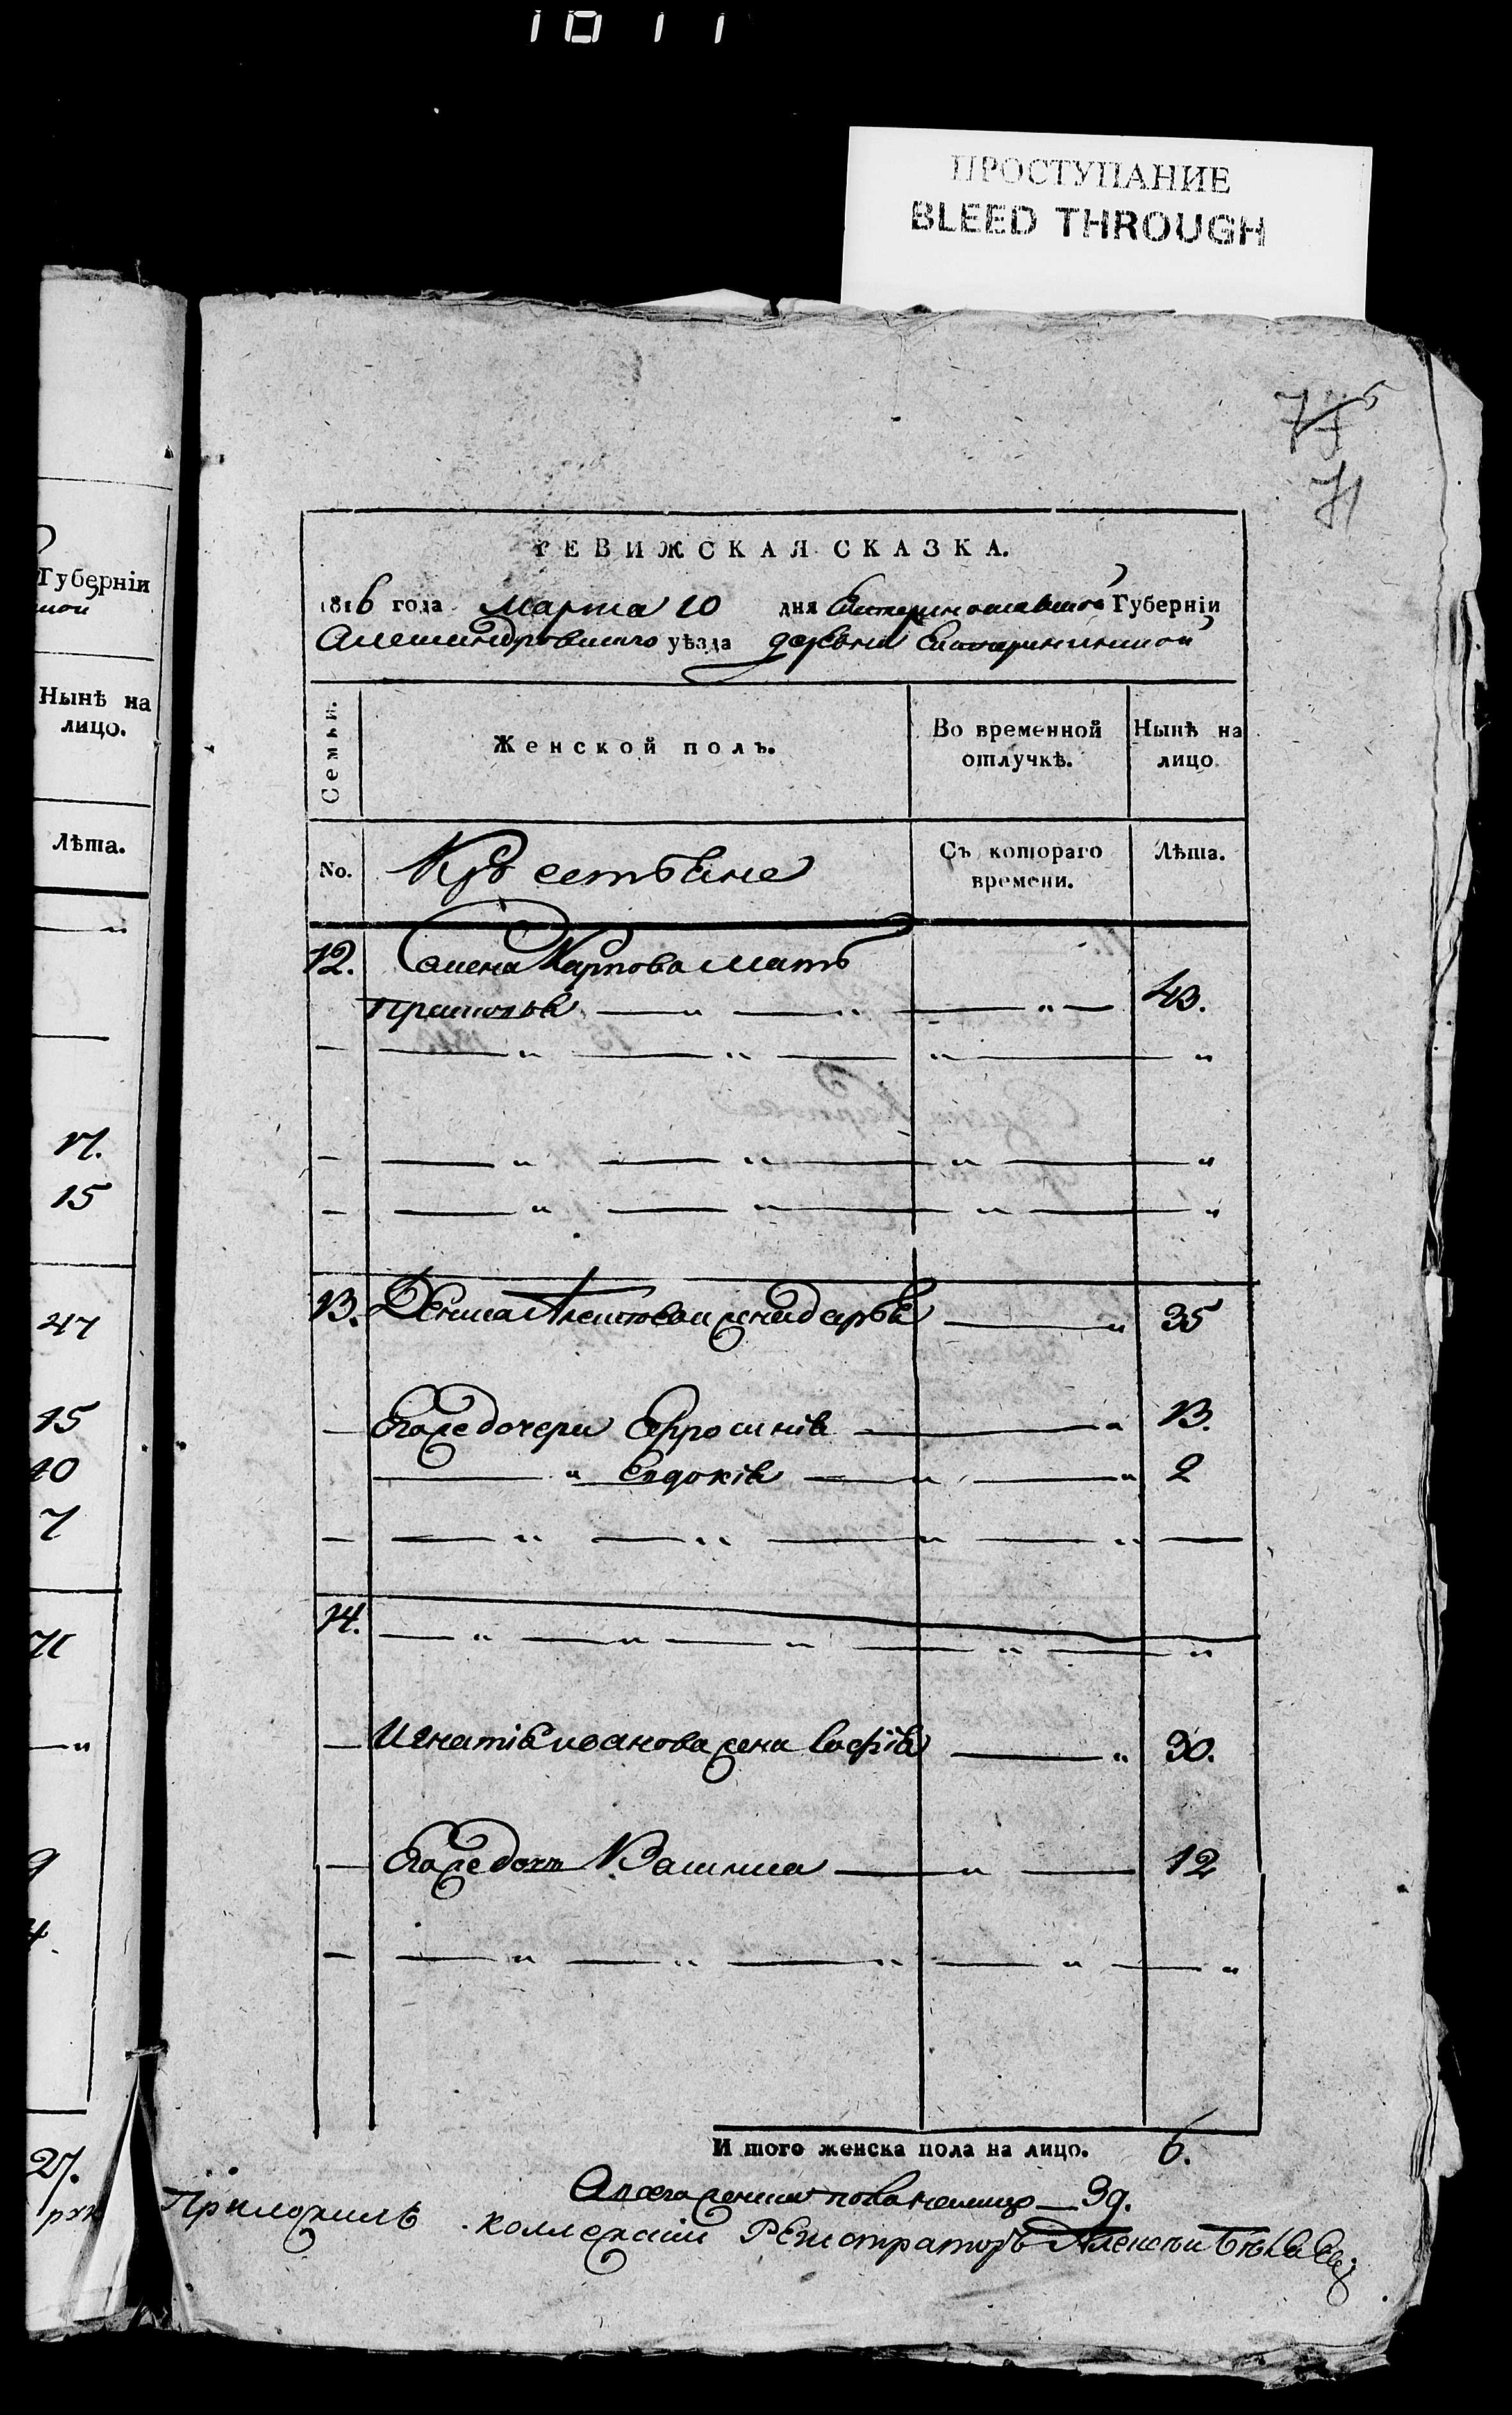 1011
ПРОСТУПАНИЕ
BLEED THROUGH
775
71
Губерніи
Нынѣ на
лицо.
Лѣта.
17.
15
47
15
10
7
9
4.
27.
РЕВИЖСКАЯ СКАЗКА.
1816 года Марта 10 дня Екатеринославской Губерніи
Александровскаго уѣзда деревни Екатерининской
Семьи.
Женской полъ.
Во временной
отлучкѣ.
Нынѣ на
лицо
No.
Крестьяне
Съ котораго
времени.
Лѣта.
12. Карпова мать
43.
13. Дениса жена Дарья 35
Его же дочери Ефросинія 13.
Евдокія 2
14.
Игнатія Иванова жена Софія 30.
Его же дочь 12
И того женска пола на лицо. 6.
А всего женска пола на лицо 39.
Приложилъ коллежскій Регистраторъ Алексѣй